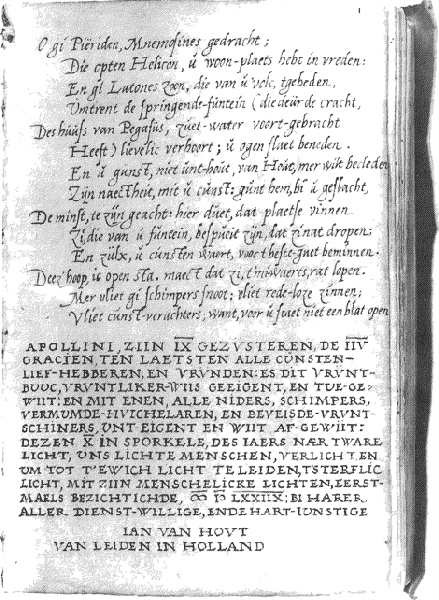 O gi Piëriden, Mnemosines gedracht;
Die opten Helicon, ú woon-plaets hebt in vreden:
En gi Latones zoon, die van ú volc, tgebeden,
Umtrent de springende-funtein (die deur de cracht,
Des huufs van Pegasus, zúet-water voort-gebracht
Heeft) lievelic verhoort; ú ogen slaet beneden.
En ú gunst, niet únt-hout, van Hout, mer wilt becleden
Zijn naectheit, mit ú cúnst: gúnt hem, bi ú geslacht,
De minst, te zijn geacht: hier duet, dat plaetse vinnen
Zi, die van ú funtein, bespueit zijn, dat zi nat dropen:
En zulx, ú cúnsten wært, voor thefte-guit beminnen.
Deez' hoop, ú open sta. maect dat zi, t'uwærts, rat lopen.
Mer vliet gi schimpers snoot: vliet rede-loze zinnen;
Vliet cúnst-verachters; want, voor ú sulet niet een blat open
APOLLINI, ZIIN IX GEZUSTEREN, DE IIV
GRACIEN, TEN LAETSTEN ALLE CUNSTEN-
LIEF-HEBBEREN, EN VRUNDEN: ES DIT VRUNT-
BOUC, VRUNTLIKER-WIIS GEEIGENT, EN TUE-GE-
WIIT: EN MIT ENEN, ALLE NIDERS, SCHIMPERS,
VERMUMDE-HUICHELAREN, EN BEVEISDE-VRUNT
SCHINERS, UNT EIGENT EN WIIT AF-GEWIIT:
DEZEN X IN SPORKELE, DES IAERS NÆR TWARE
LICHT, UNS LICHTE MENSCHEN, VERLICHT. EN
UM TOT T'EWICH LICHT TE LEIDEN, TSTERFLIC
LICHT, MIT ZIIN MENSCHELICKE LICHTEN, EERST-
MAELS BEZICHTICHDE, ↀ IↃ LXXIIX: BI HARER
ALLER DIENST-WILLIGE, ENDE HART-IUNSTIGE
IAN VAN HOUT
VAN LEIDEN IN HOLLAND